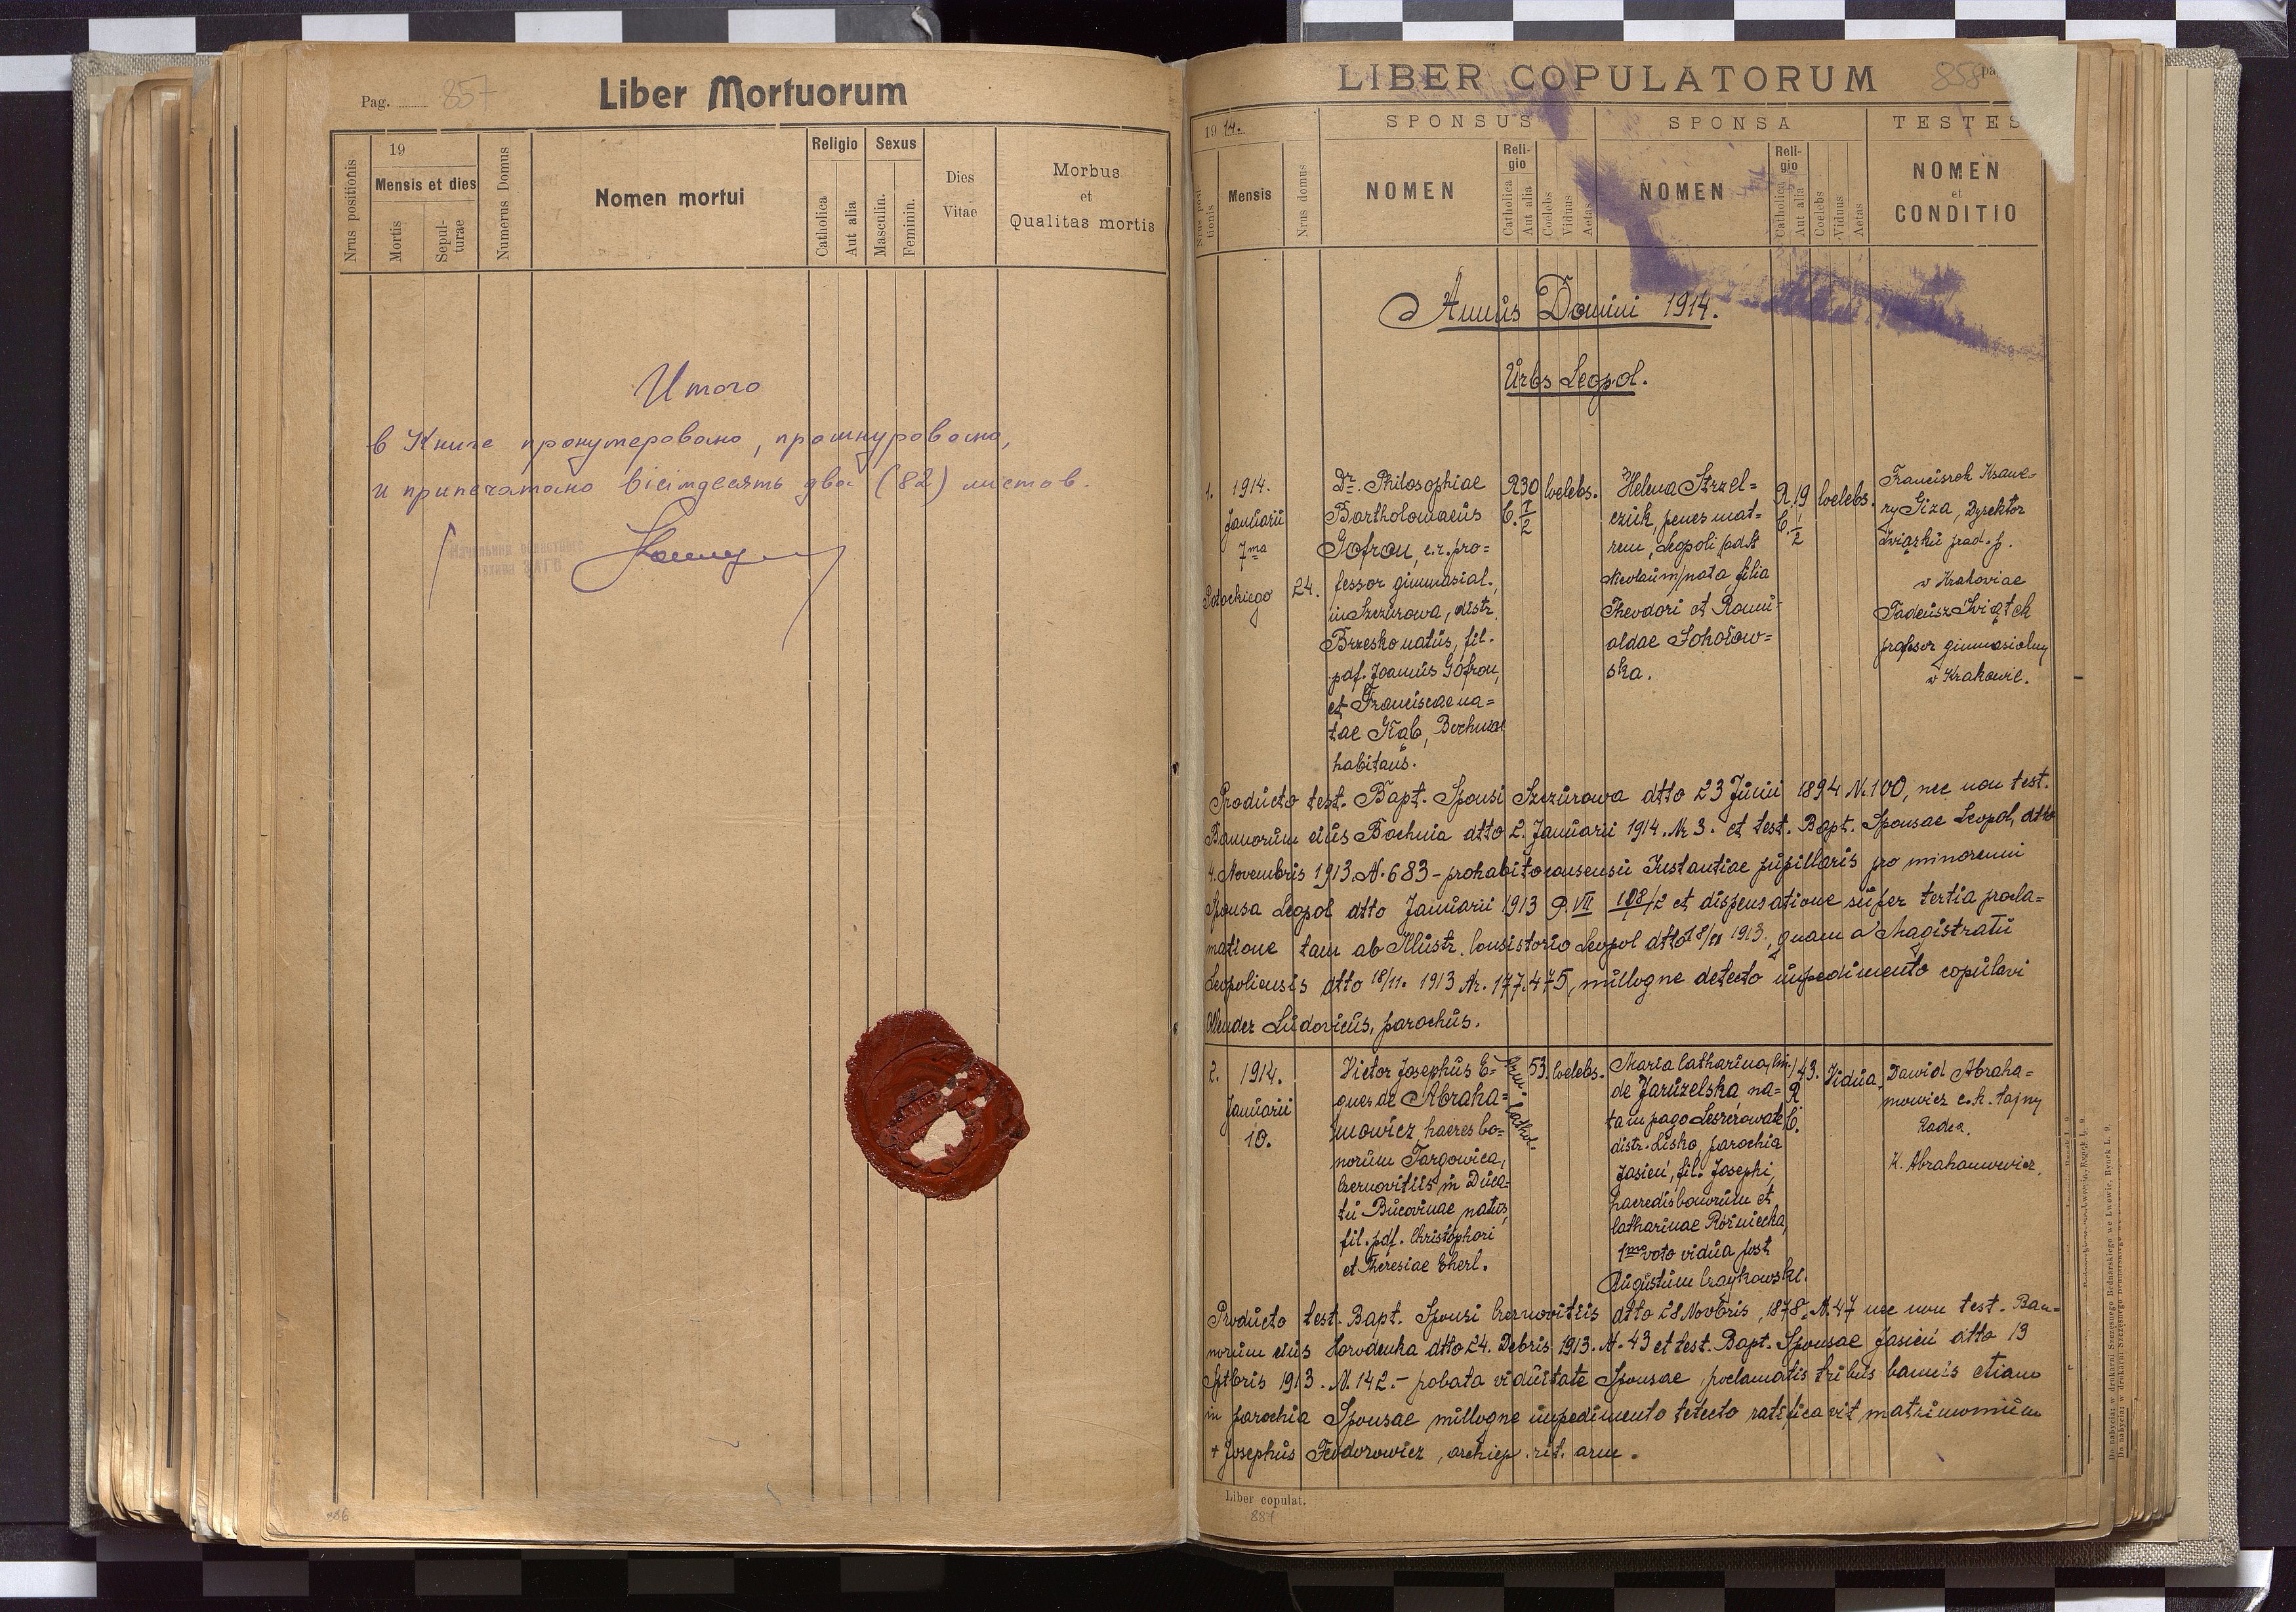 Pag. 857
Liber Mortuorum
Nrus positionis
19
Mensis et dies
Mortis
Sepulturae
Numerus Domus
Nomen mortui
Religio
Catholica
Aut alia
Sexus
Masculin.
Feminin.
Dies
Vitae
Morbus
et
Qualitas mortis
Итого
в Книге пронумеровано, прошнуровано,
и припечатано вісімдесять два (82) листов.
886
LIBER COPULATORUM
858 pag
1914.
Mensis
Nrus domus
SPONSUS
NOMEN
Reli-
gio
Catholica
Aut alia
Coelebs
Viduus
Aetas
SPONSA
NOMEN
Reli-
gio
Catholica
Aut alia
Coelebs
Viduus
Aetas
TESTES
NOMEN
et
CONDITIO
Annus Domini 1914.
Urbs Leopol.
1.
1914.
Januarii
7ma
Potockiego
24.
Dr. Philosophiae
Bartholomaeus
Gofron, c.r. pro=
fessor gimnasial.
in Szczurowa, distr.
Brzesko natus, fil.
pdf. Joannis Gofron,
et Franciscae na=
tae Głąb, Bochniae
habitans.
R. 30 Coelebs.
C. 1/2
Helena Strzel=
czuk, penes mat=
rem, Leopoli (ad St
Nicolaum) nata, filia
Theodori et Romu-
aldae Sokołow=
ska.
R. 19 Coelebs.
C. 1/2
Franciszek Ksawe-
ry Giza, Dyrektor
Związku
w Krakowie
Tadeusz Świątek
profesor gimnasialny
w Krakowie.
Producto test. Bapt. Sponsi Szczurowa dtto 23 Junii 1894 N. 100, nec non test.
Bannorum eius Bochnia dtto 2. Januarii 1914. Nr 3. et test. Bapt. Sponsae Leopol, dtto
4. Novembris 1913. N. 683 - prohabito consensu Instantiae pupillaris pro minorenni
Sponsa Leopol dtto Januarii 1913 P. VII et dispensatione super tertia procla=
matione tam ab Illustr. Consistorio Leopol dtto 1913., quam a Magistratu
Leopoliensis dtto 18/11. 1913 Nr. 177.475, nulloque detecto impedimento copulavi
Ollender Ludovicus, parochus.
2.
1914.
Januarii
10.
Victor Josephus E-
ques de Abraha=
mowicz, haeres bo=
norum Targowica,
Czernovitiis in Duca-
tu Bucovinae natus,
fil. pdf. Christophori
et Theresiae Eherl.
53. Coelebs.
Maria Catharina,
de Jaruzelska na=
ta in pago Leszczowate
distr. Lisko, parochia
Jasień, fil. Josephi
haeredis bonorum et
Catharinae Różniecka,
1mo voto vidua post
Augustum Czaykowski.
R.
C.
43. Vidua.
Dawid Abraha=
mowicz c.k. tajny
Radca.
K. Abrahamowicz.
Producto test. Bapt. Sponsi Czernovitiis dtto 28 Novbris, 1878. N. 47 nec non test. Ban-
norum eius Horodenka dtto 24. Debris 1913. N. 43 et test. Bapt. Sponsae Jasień dtto 19
Sptbris 1913. N. 142. - probata viduitate Sponsae, proclamatis tribus bannis etiam
in parochia Sponsae nulloque impedimento tetecto ratificavit matrimonium
+ Josephus Teodorowicz, archiep. rit. arm.
Liber copulat.
887
Do nabycia: w drukarni Szczęsnego Bednarskiego we Lwowie, Rynek L. 9.